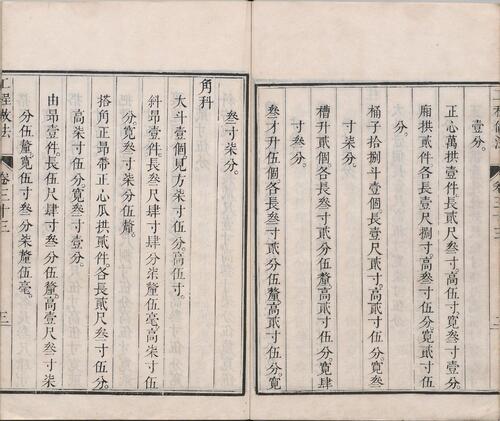 壹分。
正心萬拱壹件長貳尺叁寸壹分。高伍寸。寬叁寸壹分。
廂拱貳件各長壹尺捌寸。高叁寸伍分。寬貳寸伍
分。
桶子拾捌斗壹個。長壹尺貳寸。高貳寸伍分。寬叁
寸柒分。
槽升貳個各長叁寸貳分伍釐。高貳寸伍分。寬肆
寸叁分。
叁才升伍個各長叁寸貳分伍釐。高貳寸伍分。寬
叁寸柒分。
角科
大斗壹個。見方柒寸伍分。高伍寸。
斜昂壹件。長叁尺肆寸肆分柒釐伍毫。高柒寸伍
分。寬叁寸柒分伍釐。
搭角正昂帶正心瓜拱貳件各長貳尺叁寸伍分。
高柒寸伍分。寬叁寸壹分。
由昂壹件。長伍尺肆寸叁分伍釐。高壹尺叁寸柒
分伍釐。寬伍寸叁分柒釐伍毫。
工程做法
卷三十三
三